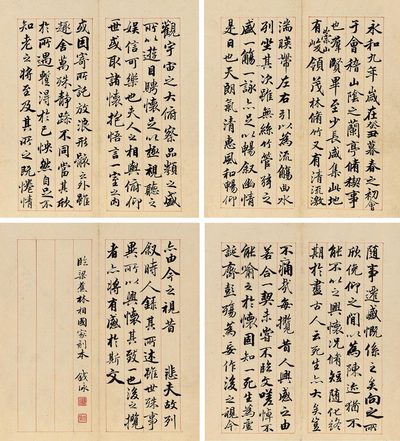 永和九年歲在癸丑暮春之初會
于會稽山陰之蘭亭脩稧事
也羣賢畢至少長咸集此地
有崇山峻領茂林脩竹又有清流激
湍暎帶左右引以為流觴曲水
列坐其次雖無絲竹管弦之
盛一觴一詠亦足以暢叙幽情
是日也天朗氣清惠風和暢仰
觀宇宙之大俯察品類之盛
所以遊目騁懷足以極視聽之
娛信可樂也夫人之相與俯仰
一世或取諸懷抱悟言一室之內
或因寄所託放浪形骸之外雖
趣舍萬殊靜躁不同當其欣
於所遇蹔得於己怏然自足不
知老之將至及其所之既惓情
隨事遷感慨係之矣向之所
欣俛仰之間以為陳迹猶不
能不以之興懷況脩短隨化終
期於盡古人云死生亦大矣豈
不痛哉每攬昔人興感之由
若合一契未嘗不臨文嗟悼不
能喻之於懷固知一死生為虛
誕齊彭殤為妄作後之視今
亦由今之視昔 悲夫故列
叙時人錄其所述雖世殊事
異所以興懷其致一也後之攬
者亦將有感於斯文
臨梁蕉林相國家刻本 錢泳